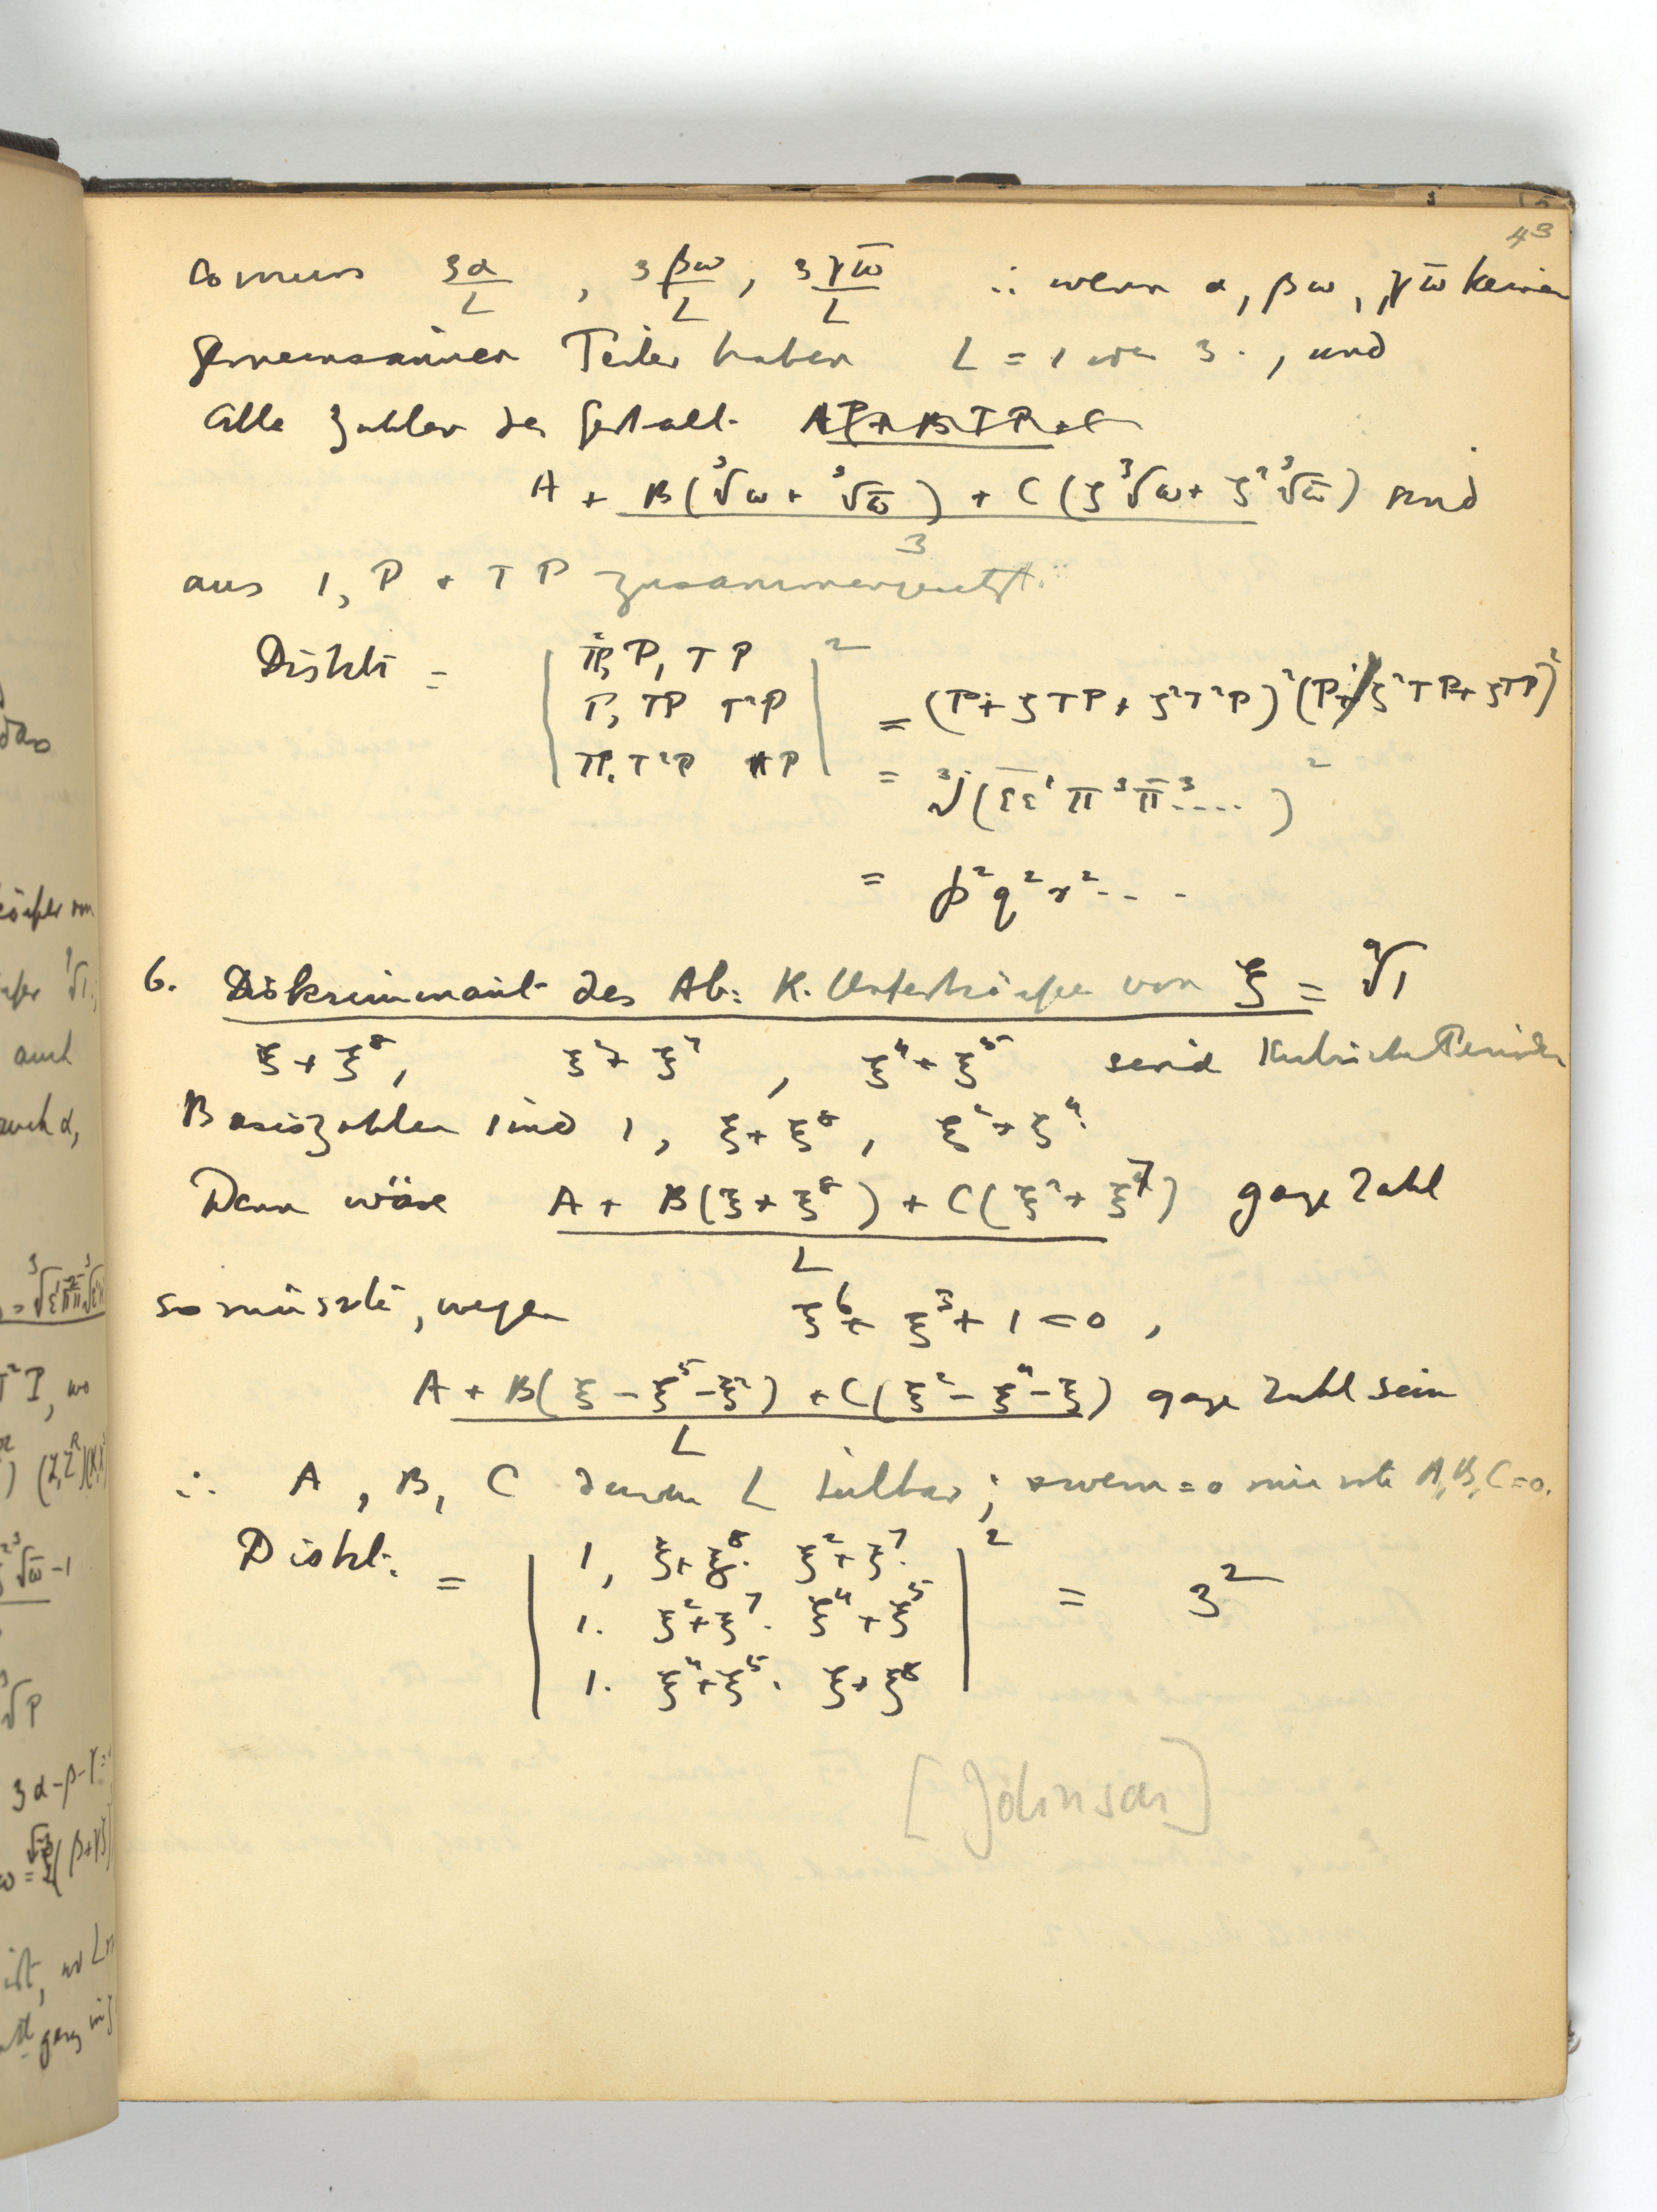 43
so muss 3α/L , 3βω/L , 3γω̄/L ∴ wenn α, βω, γω̄ keinen
gemeinsamen Teiler haben L = 1 oder 3 . , und
alle Zahlen der Gestalt
A + B(³√ω + ³√ω̄) + C(ζ³√ω + ζ²³√ω̄) sind
3
aus 1, P + TP zusammengesetzt.
Diskte = | T²P, P, TP |²
| P, TP T²P | = (P + ζTP + ζ²T²P)² (P + ζ²TP + ζTP)²
| TP, T²P P | = ³√(εε' π³ π̄³ .... )²
= p² q² r² - - -
6. Diskriminant des Ab: K. Unterkörper von ξ = ⁹√1
ξ + ξ⁸, ξ² + ξ⁷ , ξ⁴ + ξ⁵ seid Kubische Perioden
Basiszahlen sind 1, ξ + ξ⁸ , ξ² + ξ⁷.
Denn wäre A + B(ξ + ξ⁸) + C(ξ² + ξ⁷) ganze Zahl
L
so müsste, wegen ξ⁶ + ξ³ + 1 = 0 ,
A + B(ξ - ξ⁵ - ξ²) + C(ξ² - ξ⁴ - ξ) ganze Zahl sein
L
∴ A , B, C durch L teilbar ; wenn = 0 müsste A, B, C = 0.
Diskt. = | 1, ξ + ξ⁸. ξ² + ξ⁷. |² = 3²
| 1. ξ² + ξ⁷. ξ⁴ + ξ⁵ |
| 1. ξ⁴ + ξ⁵. ξ + ξ⁸ |
[Johnson]